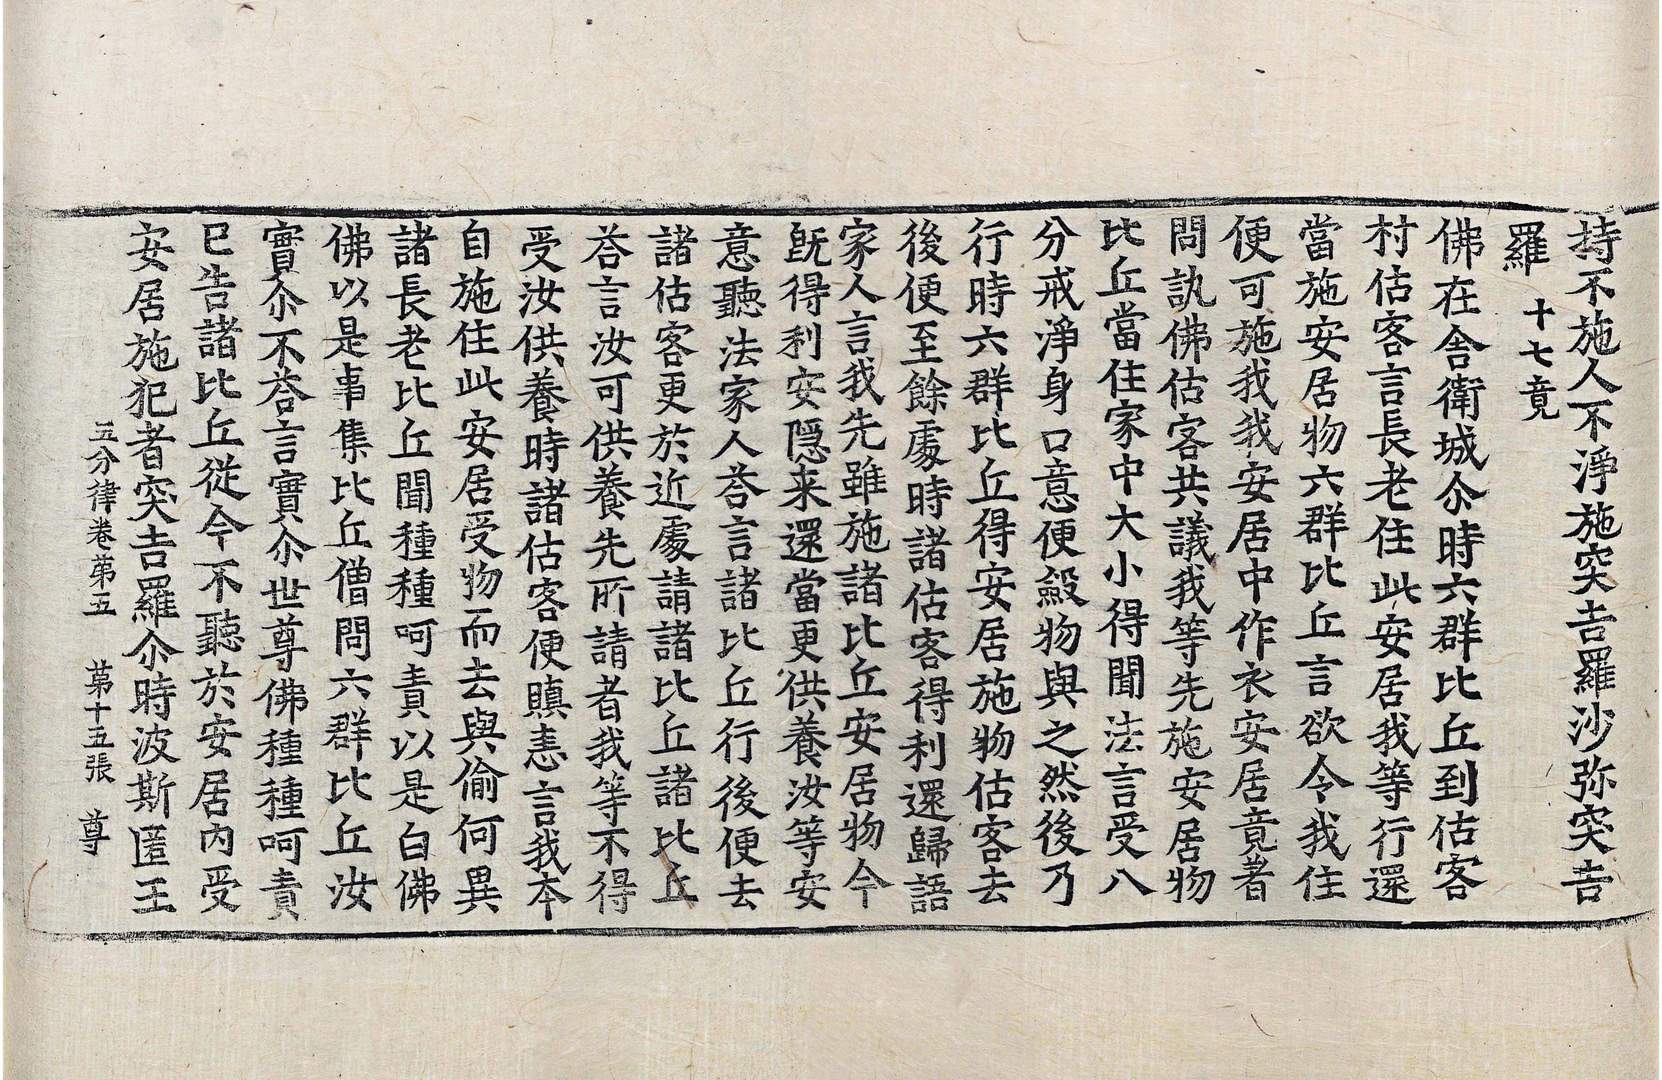 持不施人不淨施突吉羅沙弥突吉
羅 十七竟
佛在舎衛城尒時六群比丘到估客
村估客言長老住此安居我等行還
當施安居物六群比丘言欲令我住
便可施我我安居中作衣安居竟者
問訊佛估客共議我等先施安居物
比丘當住家中大小得聞法言受八
分戒淨身口意便㪇物與之然後乃
行時六群比丘得安居施物估客去
後便至餘處時諸估客得利還歸語
家人言我先雖施諸比丘安居物今
旣得利安隱来還當更供養汝等安
意聽法家人荅言諸比丘行後便去
諸估客更於近處請諸比丘諸比丘
荅言汝可供養先所請者我等不得
受汝供養時諸估客便瞋恚言我本
自施住此安居受物而去與偷何異
諸長老比丘聞種種呵責以是白佛
佛以是事集比丘僧問六群比丘汝
實尒不荅言實尒世尊佛種種呵責
已告諸比丘從今不聽於安居內受
安居施犯者突吉羅尒時波斯匿王
五分律卷苐五 苐十五張 尊